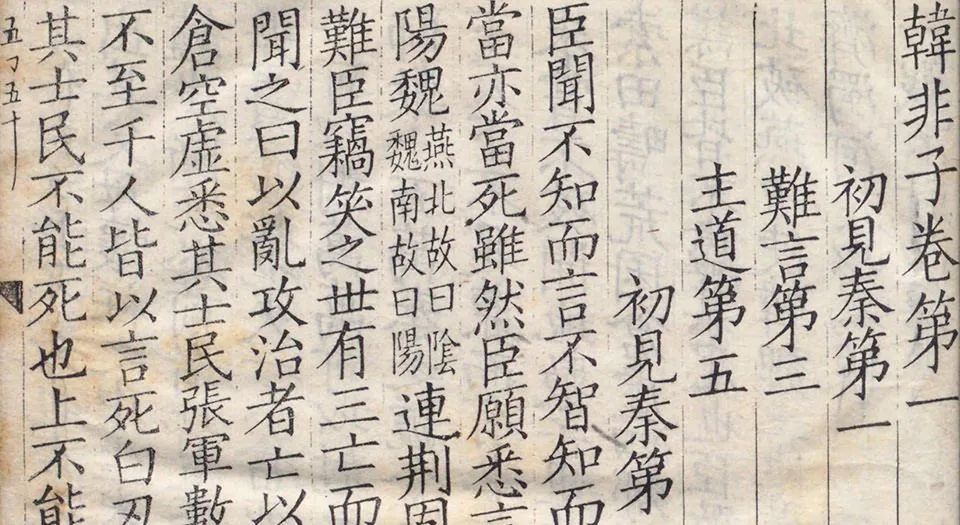 韓非子卷第一
初見秦第一
難言第三
主道第五
初見秦第
臣聞不知而言不智知而
當亦當死雖然臣願悉言
陽魏燕北故曰陰魏南故曰陽連荆固
難臣竊笑之世有三亡而
聞之曰以亂攻治者亡以
倉空虛悉其士民張軍數
不至千人皆以言死白刃
其士民不能死也上不能